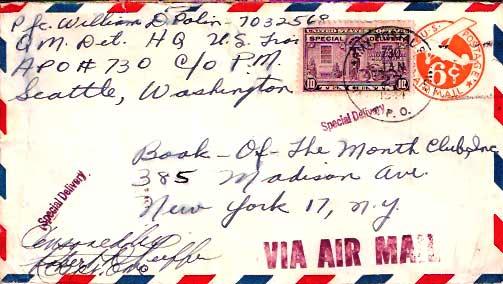 Pfc. William D. Polin - 7032568
Q.M. Det. HQ U.S. Troops
APO# 730 C/O P.M.
Seattle, Washington.
UNITED STATES
SPECIAL DELIVERY
10 10
730
JAN
P. O.
U.S. POSTAGE
6¢
AIR MAIL
Special Delivery
Book-Of-The Month Club, Inc.
385 Madison Ave.
New York 17, N.Y.
Special Delivery
Censored by
VIA AIR MAIL